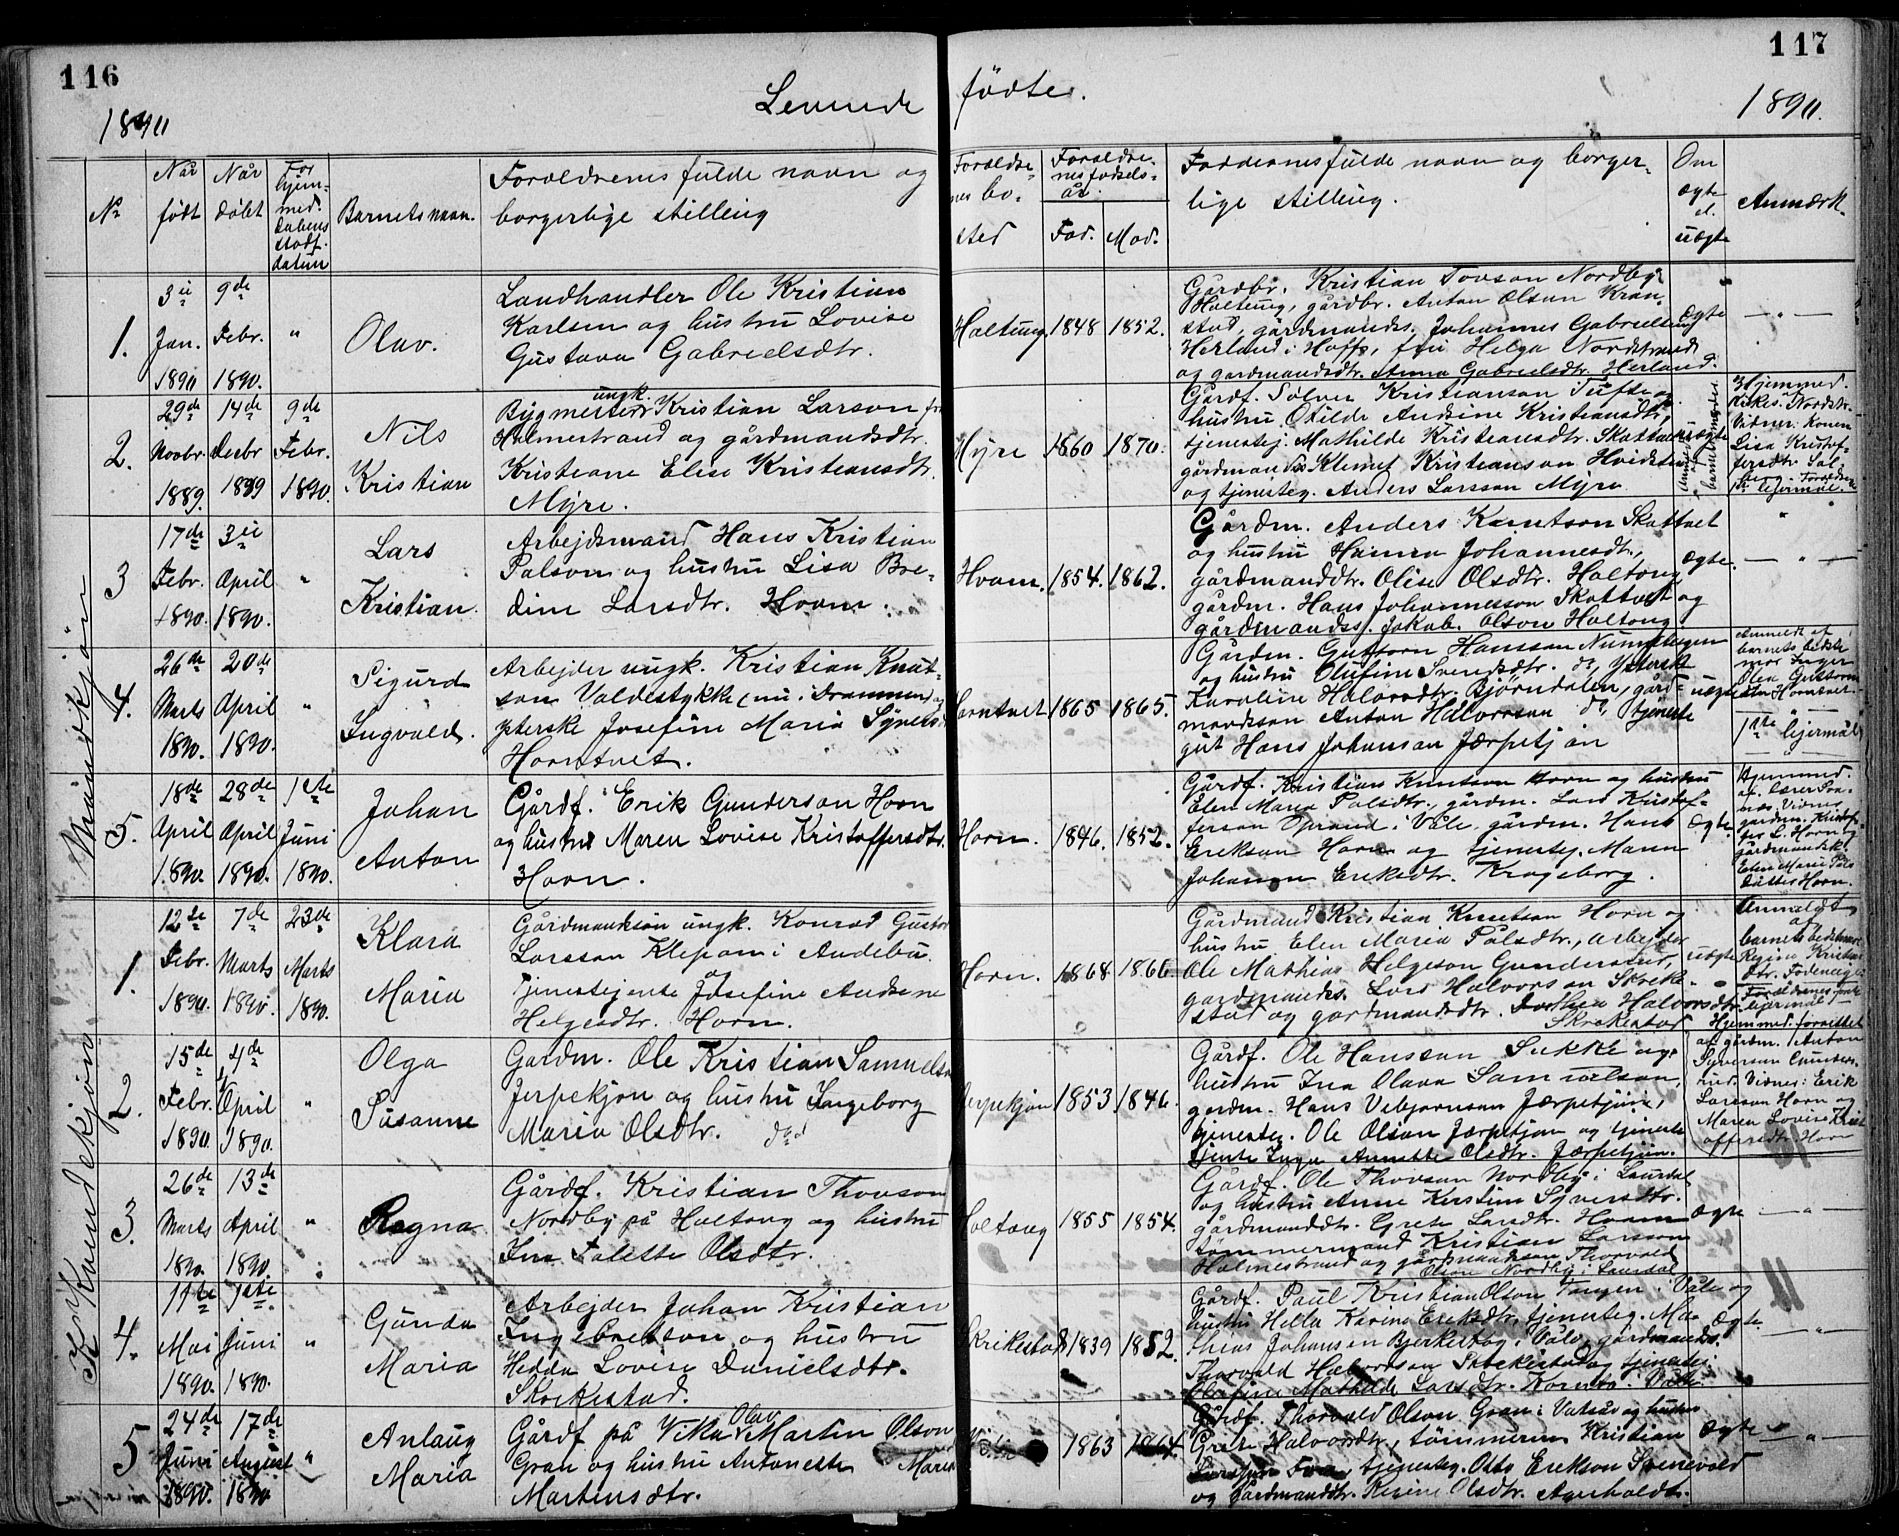 116
117
Levende fødte.
1890
1890.
№
Når født
Når døbt
For hjem-
med.
dåbens
stadf.
datum
Barnets navn.
Forældrenes fulde navn og
borgerlige stilling
Forældre-
nes bo-
sted
Forældre-
nes fødsels-
år.
Fad.
Mod.
Faddernes fulde navn og borger-
lige stilling.
Om
ægte
el.
uægte
Anmærk.
Mandkjøn
1.
3ie Jan. 1890
9de Febr. 1890.
"
Olav.
Landhandler Ole Kristian
Karlsen og hustru Lovise
Gustava Gabrielsdtr.
Holtung.
1848
1852.
Gårdbr. Kristian Tovson Nordby
Holtung, gårdbr. Anton Olsen Kran-
stad, gårdmands. Johannes Gabrielsen
Herland i Hoff, fru Helga Nordstrand
og gardmandsdtr. Anna Gabrielsdtr. Herland.
Ægte
— " —
2.
29de Novbr. 1889.
14de Decbr 1889
9de Febr. 1890.
Nils
Kristian
Bygmester ungk. Kristian Larson fra
Holmestrand og gårdmandsdtr.
Kristiane Elise Kristiansdtr.
Myre.
Myre
1860
1870.
Gårdf. Sølver Kristianson Tufte og
hustru Otilde Andrine Kristiansdtr,
tjenestej. Mathilde Kristiansdtr. Skottvet
gårdmands Klemet Kristianson Hvidsten
og tjenesteg. Anders Larsson Myre
uægte
Hjemmed.
Vidner: Konen
Lisa Kristof-
fersdtr. Sol-
berg. Forældrenes
1ste lejermål.
3
17de Febr. 1890.
3ie April 1890.
"
Lars
Kristian.
Arbejdsmand Hans Kristian
Palson og hustru Lisa Bre-
dine Larsdtr. Hvam.
Hvam.
1854.
1862.
Gårdm. Anders Knutson Skottvet
og hustru Hanna Johannesdtr,
gårdmanddtr. Olise Olsdtr. Holtung
gårdm. Hans Johannesson Skottvet og
gårdmandss. Jakob. Olson Holtung
Ægte.
— " —
4.
26de Marts 1890.
20de April 1890.
"
Sigurd
Ingvald.
Arbejder ungk. Kristian Knut-
son Valdestykke (nu i Drammen) og
ypterske Josefine Maria Synesdtr
Horntvet.
Horntvet
1865
1865.
Gårdm. Guttorm Hansson
og hustru Olufine Svendsdtr. do,
Karoline Halvordtr. Bjørndalen, gård-
mandsson Anton Halvorson do, tjeneste
gut Hans Johanson Jærpetjøn
uægte
Anmeldt af
barnets bedste
mor Inger
Olea Guttorms
dtr Horntvet.
1ste lejermål
5.
18de April 1890.
28de April 1890.
1ste Juni 1890.
Johan
Anton
Gårdf. Erik Gunderson Horn
og hustru Maren Lovise Kristoffersdtr.
Horn.
Horn.
1846.
1852.
Gårdf. Kristian Knutson Horn og hustru
Elen Maria Palsdtr., gårdm. Lars Kristof-
ferson Sprand i Våle, gårdm. Hans
Erikson Horn og tjenesteg. Maren
Johanne Eriksdtr. Krogsborg.
Ægte.
Hjemmed.
Vidner
gårdm. Kristof-
fer L. Horn og
gårdmandsk.
Elen Marie Pals
datter Horn.
Kvindekjøn
1.
12te Febr. 1890.
7de Marts 1890.
23de Marts 1890.
Klara
Maria
Gårdmandsøn ungk. Konrad Gustav
Larsson Klepan i Andebu.
og
Tjenestejente Josefine Andrine
Helgesdtr. Horn.
Horn.
1868
1866.
Gårdmand Kristian Knutson Horn og
hustru Elen Maria Pålsdtr., arbejder
Ole Mathias Helgeson Gundersrud,
gardmands. Lars Halvorson Skrike-
stad og gardmandsdtr. Dorthea Halvorsdtr.
Skrikestad
uægte
Anmeldt
af
barnets bedstemor
Regine Kristians
dtr.
Forældrenes 1ste
lejermål
2.
15de Febr. 1890
4de April 1890.
"
Olga
Susanne
Gårdm. Ole Kristian Samuelson
Jerpekjøn og hustru Ingeborg
Maria Olsdtr. do
Jerpekjøn
1853
1846.
Gårdf. Ole Hansson Sukke og
hustru Ina Olava Samuelson,
gardm. Hans Vebjørnson Jærpetjøn,
tjenesteg. Ole Olson Jærpetjøn og tjeneste
jente Inga Annette Olsdtr. Jærpetjøn.
Hjemmed. forrettet
af gårdm. Anton
Syverson Gunders-
rud. Vidner: Erik
Larsson Horn og
Maren Lovise Krist
offersdtr. Horn
3.
26de Marts 1890.
13de April 1890.
"
Ragna
Gårdf. Kristian Thovson
Nordby på Holtung og hustru
Ina Talette Olsdtr.
Holtung
1855
1854.
Gårdf. Ole Thovson Nordby i Laurdal
og hustru Anne Kirstine Syversdtr.
gårdmanddtr. Grete Larsdtr. Hvam
tømmermand Kristian Larsson
Holmestrand og gårdmandsøn Thorvald
Olson Nordby i Laurdal
Ægte
— " —
4.
11te Mai 1890.
1ste Juni 1890.
"
Gunda
Maria
Arbejder Johan Kristian
Ingebretson og hustru
Hedda Lovise Danielsdtr.
Skrikestad.
Skrikestad
1839
1852.
Gårdf. Paul Kristian Olson Tangen i Våle og
hustru Hella Karine Eriksdtr, tjenesteg. Ma-
thias Johanson Bjerkeskog i Våle, gårdmands.
Thorvald Halvorson Skrikestad og tjenestej.
Olufine Mathilde Larsdtr. Våle
Ægte.
— " —
5
24de Juni 1890.
17de August 1890
"
Anlaug
Maria
Gårdf på Vike Olav Martin Olson
Gran og hustru Antonette Maria
Martinsdtr.
1863
1864.
Gårdf. Thorvald Olson Gran i Vatsås og hustru
Grete Halvorsdtr, tømmerm. Kristian
tjenesteg. Otto Erikson Svenevold
og gårdmanddtr. Regine Olsdtr.
Ægte
— " —